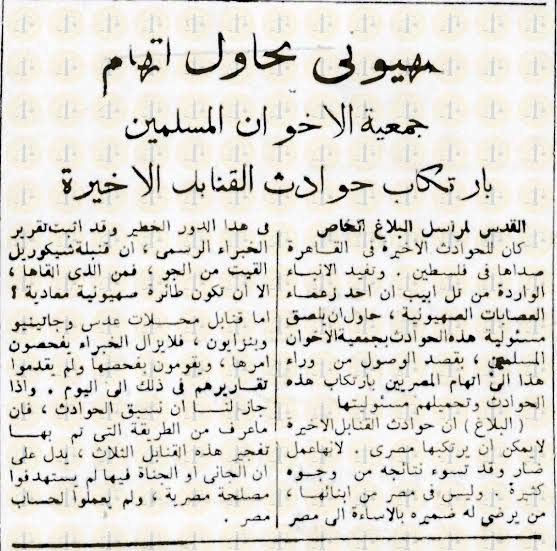 صهيونى يحاول اتهام
جمعية الاخوان المسلمين
بارتكاب حوادث القنابل الاخيرة
القدس لمراسل البلاغ الخاص
كان للحوادث الاخيرة فى القاهرة
صداها فى فلسطين . وتفيد الانباء
الواردة من تل ابيب ان احد زعماء
العصابات الصهيونية ، حاول ان يلصق
مسئولية هذه الحوادث بجمعية الاخوان
المسلمين ، بقصد الوصول من وراء
هذا الى اتهام المصريين بارتكاب هذه
الحوادث وتحميلهم مسئوليتها
( البلاغ ) ان حوادث القنابل الاخيرة
لا يمكن ان يرتكبها مصرى . لانها عمل
ضار وقد تسوء نتائجه من وجوه
كثيرة . وليس فى مصر من ابنائها ،
من يرضى له ضميره بالاساءة الى مصر
فى هذا الدور الخطير وقد اثبت تقرير
الخبراء الرسمى ، ان قنبلة شيكوريل
القيت من الجو ، فمن الذى القاها ،
الا ان تكون طائرة صهيونية معادية ؟
اما قنابل محلات عدس وجاتينيو
وبنزايون ، فلا يزال الخبراء يفحصون
امرها ، ويقومون بفحصها ولم يقدموا
تقاريرهم فى ذلك الى اليوم . واذا
جاز لنا ان نسبق الحوادث ، فإن
ما عرف من الطريقة التى تم بها
تفجير هذه القنابل الثلاث ، يدل على
ان الجانى أو الجناة فيها لم يستهدفوا
مصلحة مصرية ، ولم يعملوا لحساب
مصر .